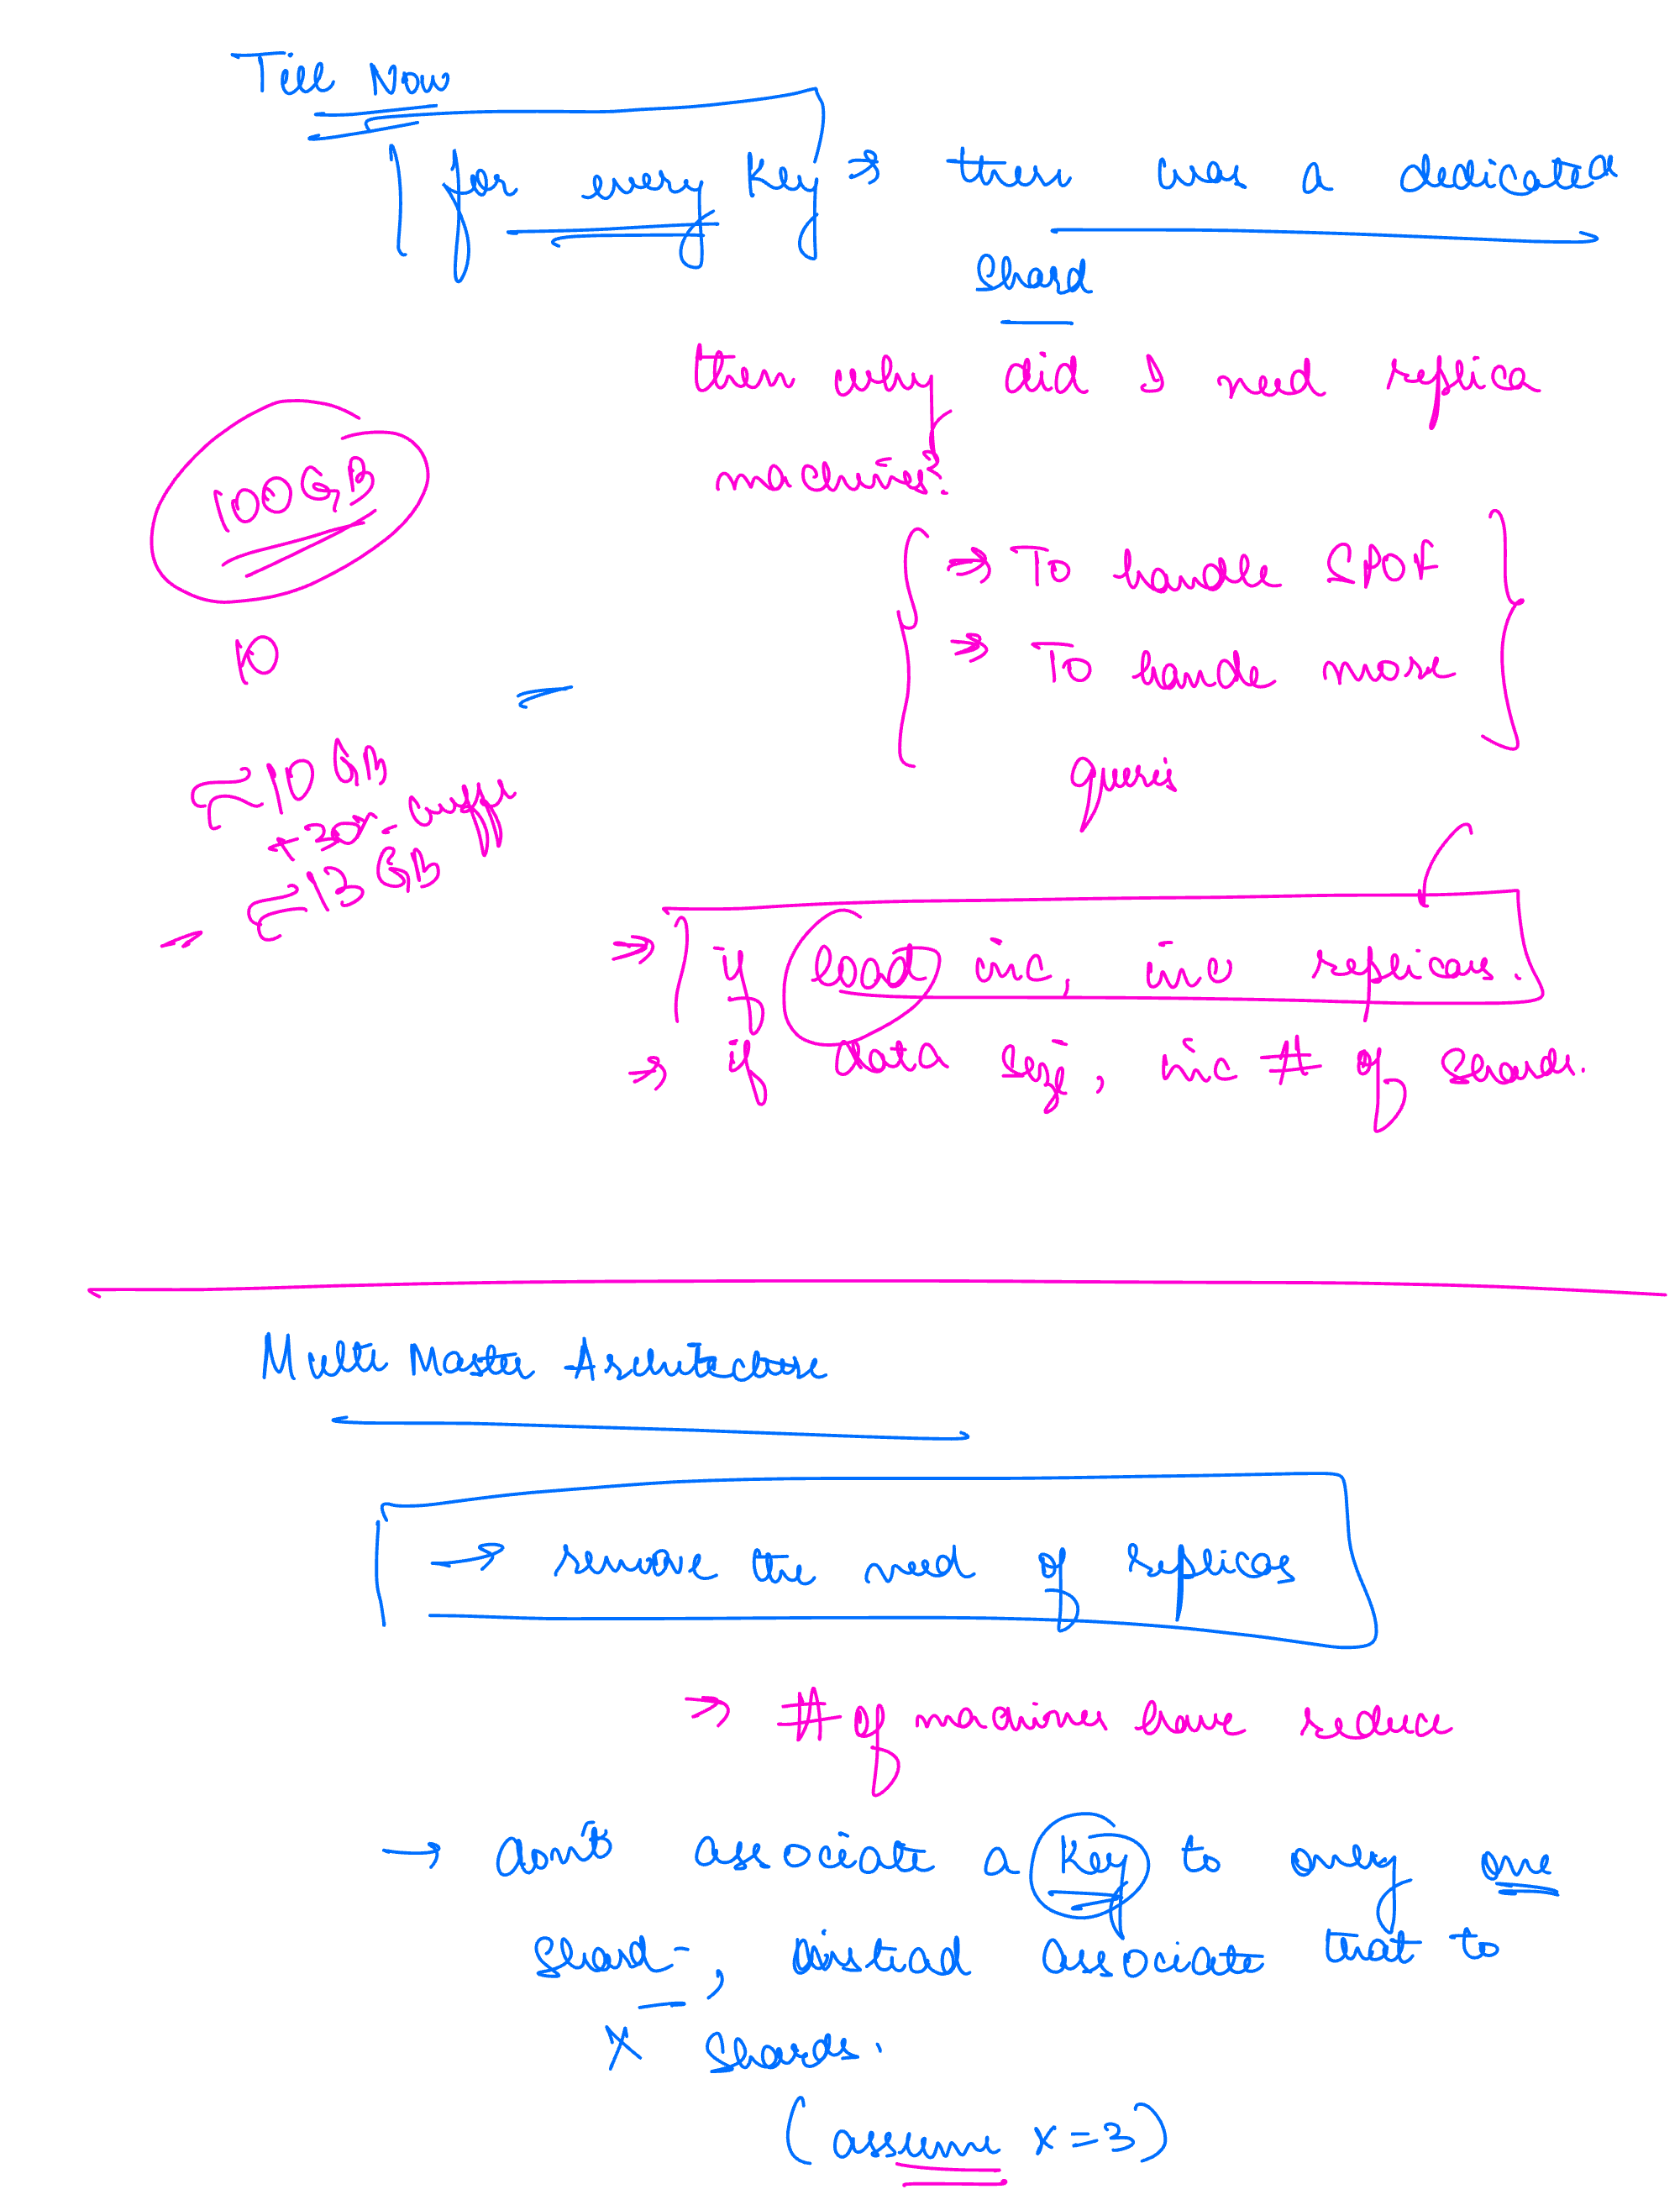 Till Now
for every key → there was a dedicated
shard
then why did I need replica
machines?
100GB
⇒ To handle SPOF
10
⇒ To handle more
queries
≈10 GB
+30% buffer
≈13 GB
⇒ if load inc, inc replicas.
⇒ if data size, inc # of shards.
Multi Master Architecture
→ remove the need of replicas
→ # of machines have reduce
→ don't associate a key to only one
shard, instead associate that to
X shards.
(assume x=3)